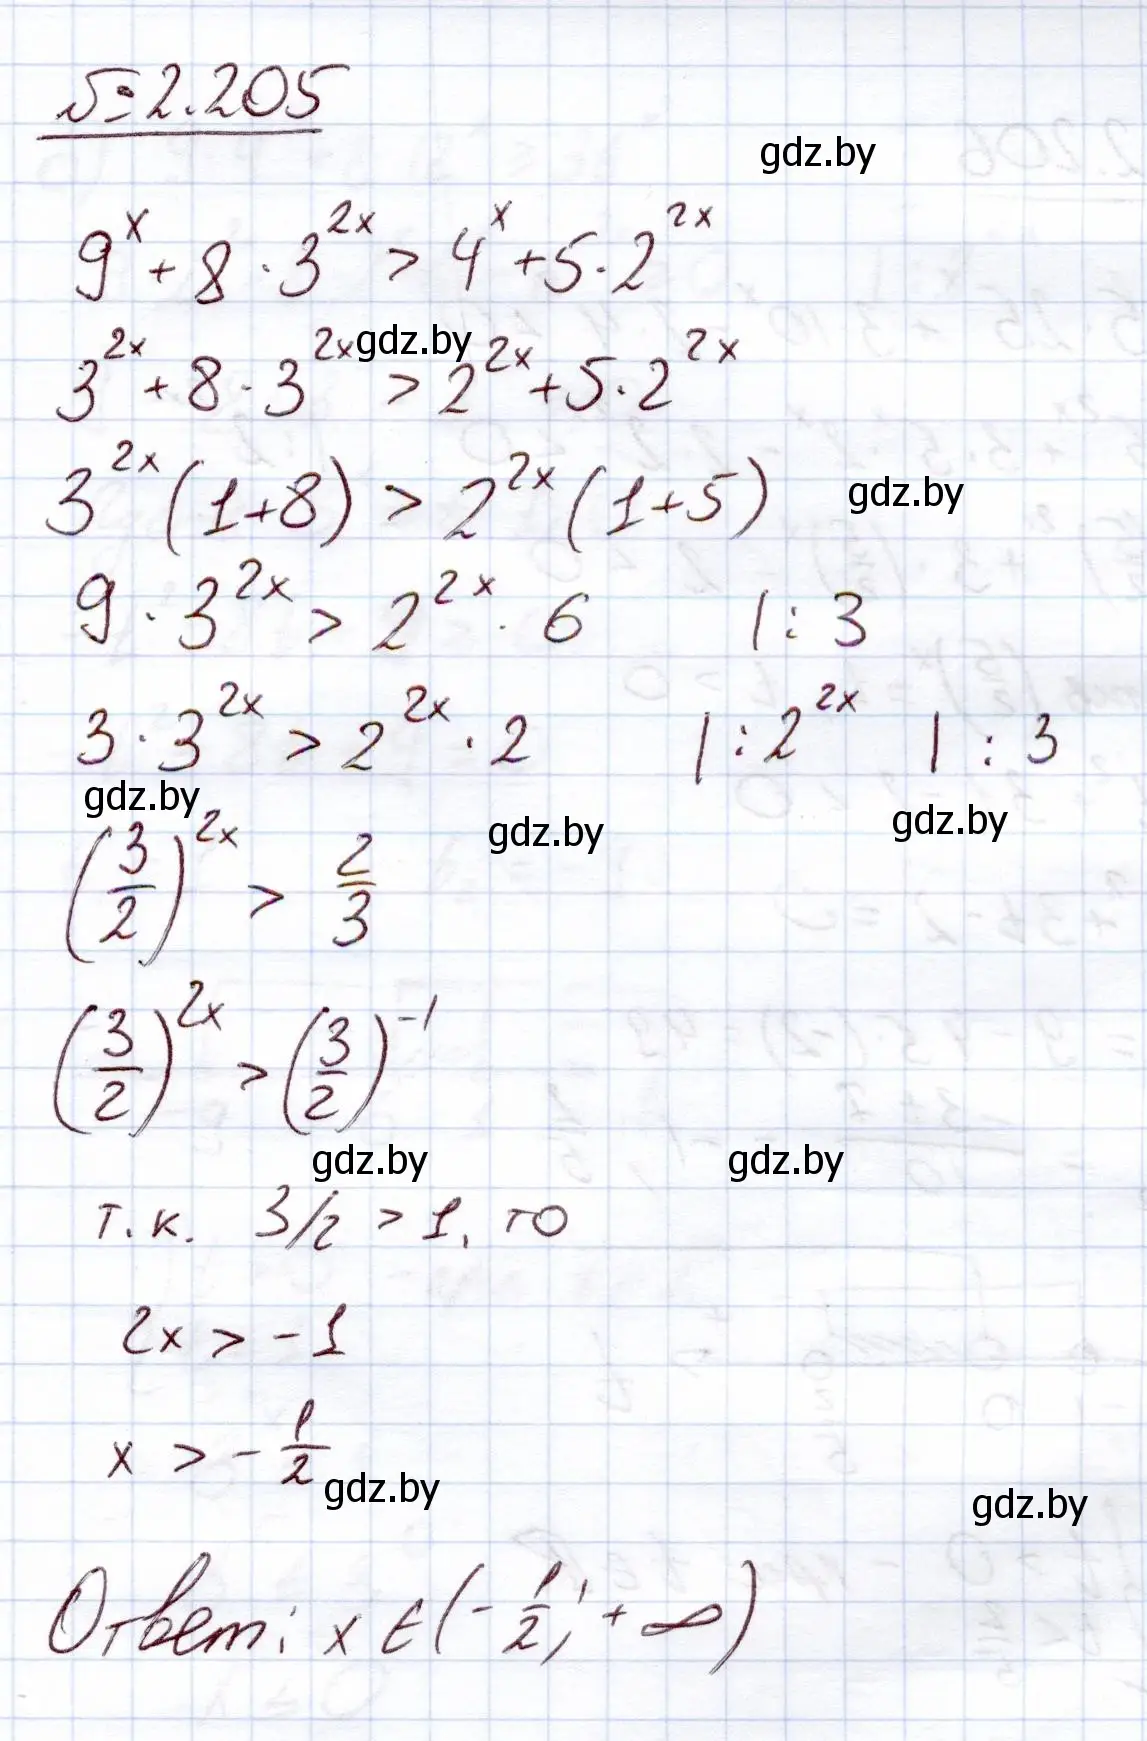 №2.205
gdz.by
9^x + 8 · 3^{2x} > 4^x + 5 · 2^{2x}
gdz.by
3^{2x} + 8 · 3^{2x} > 2^{2x} + 5 · 2^{2x}
3^{2x} (1+8) > 2^{2x} (1+5) gdz.by
9 · 3^{2x} > 2^{2x} · 6 |: 3
3 · 3^{2x} > 2^{2x} · 2 |: 2^{2x} |: 3
gdz.by gdz.by gdz.by
(3/2)^{2x} > 2/3
(3/2)^{2x} > (3/2)^{-1}
gdz.by gdz.by
т.к. 3/2 > 1, то
2x > -1
x > -1/2
gdz.by gdz.by
Ответ: x ∈ (-1/2; +∞)